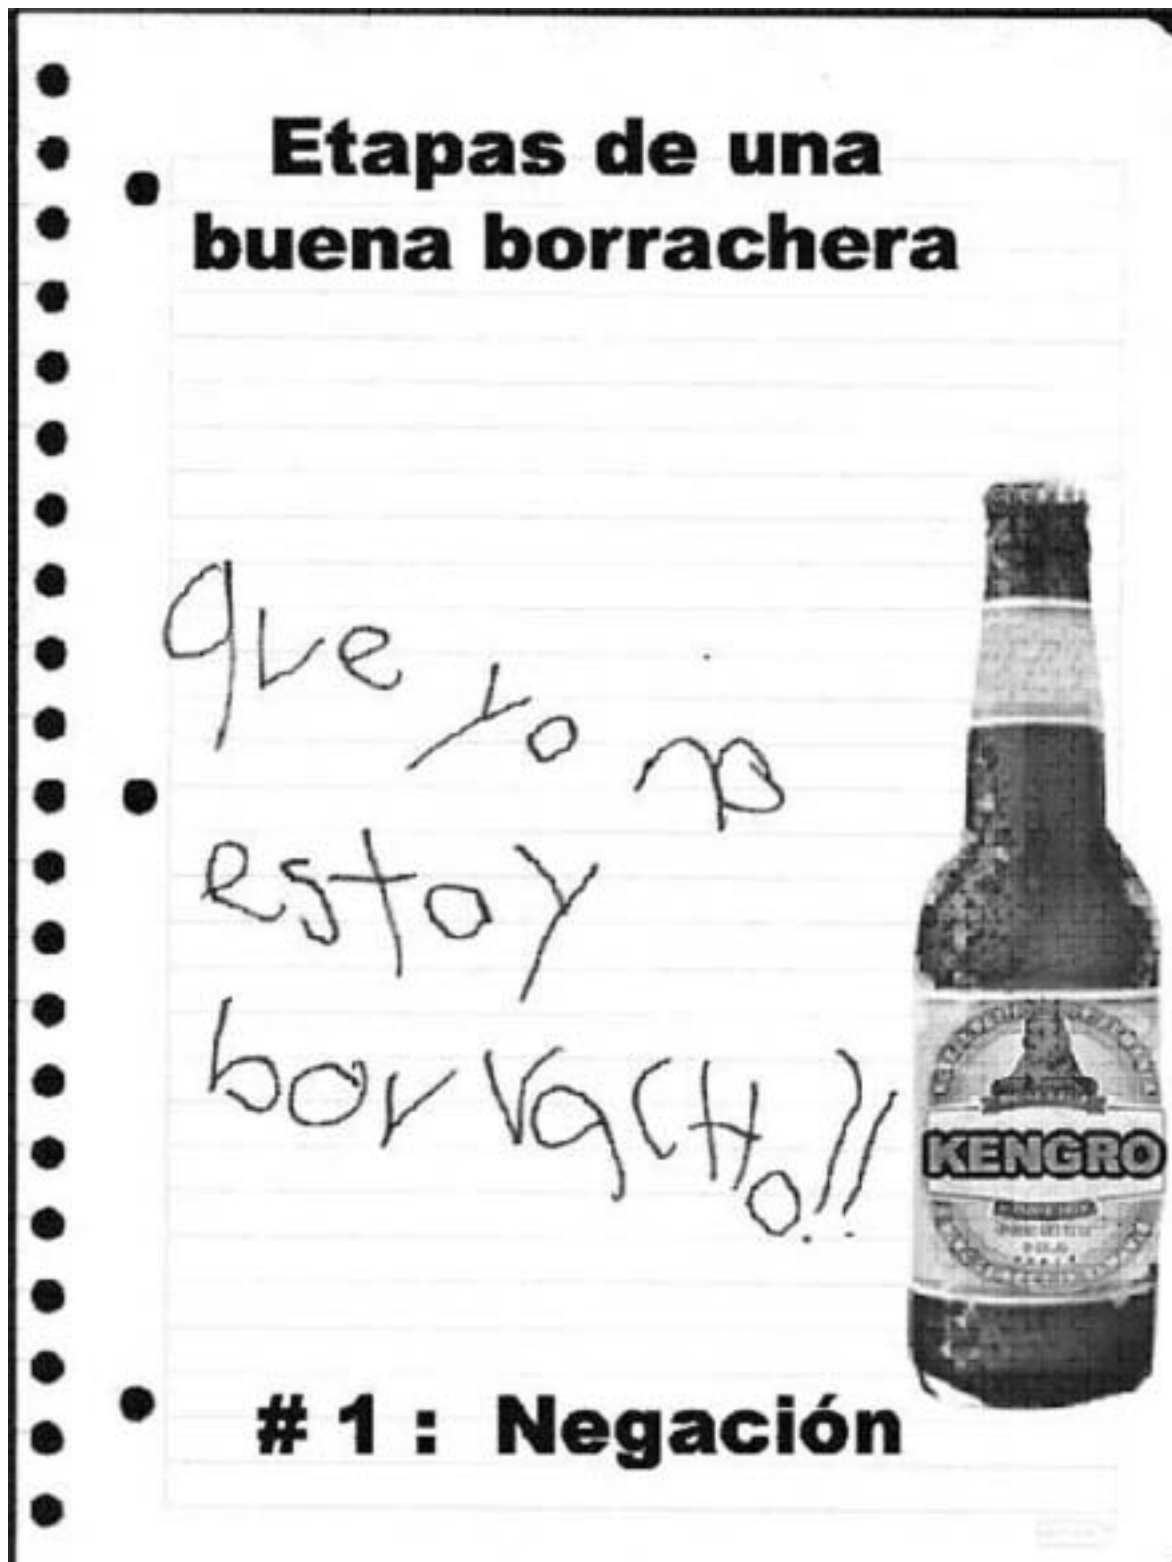 Etapas de una
buena borrachera
que yo no
estoy
borracHo!!
KENGRO
# 1 : Negación